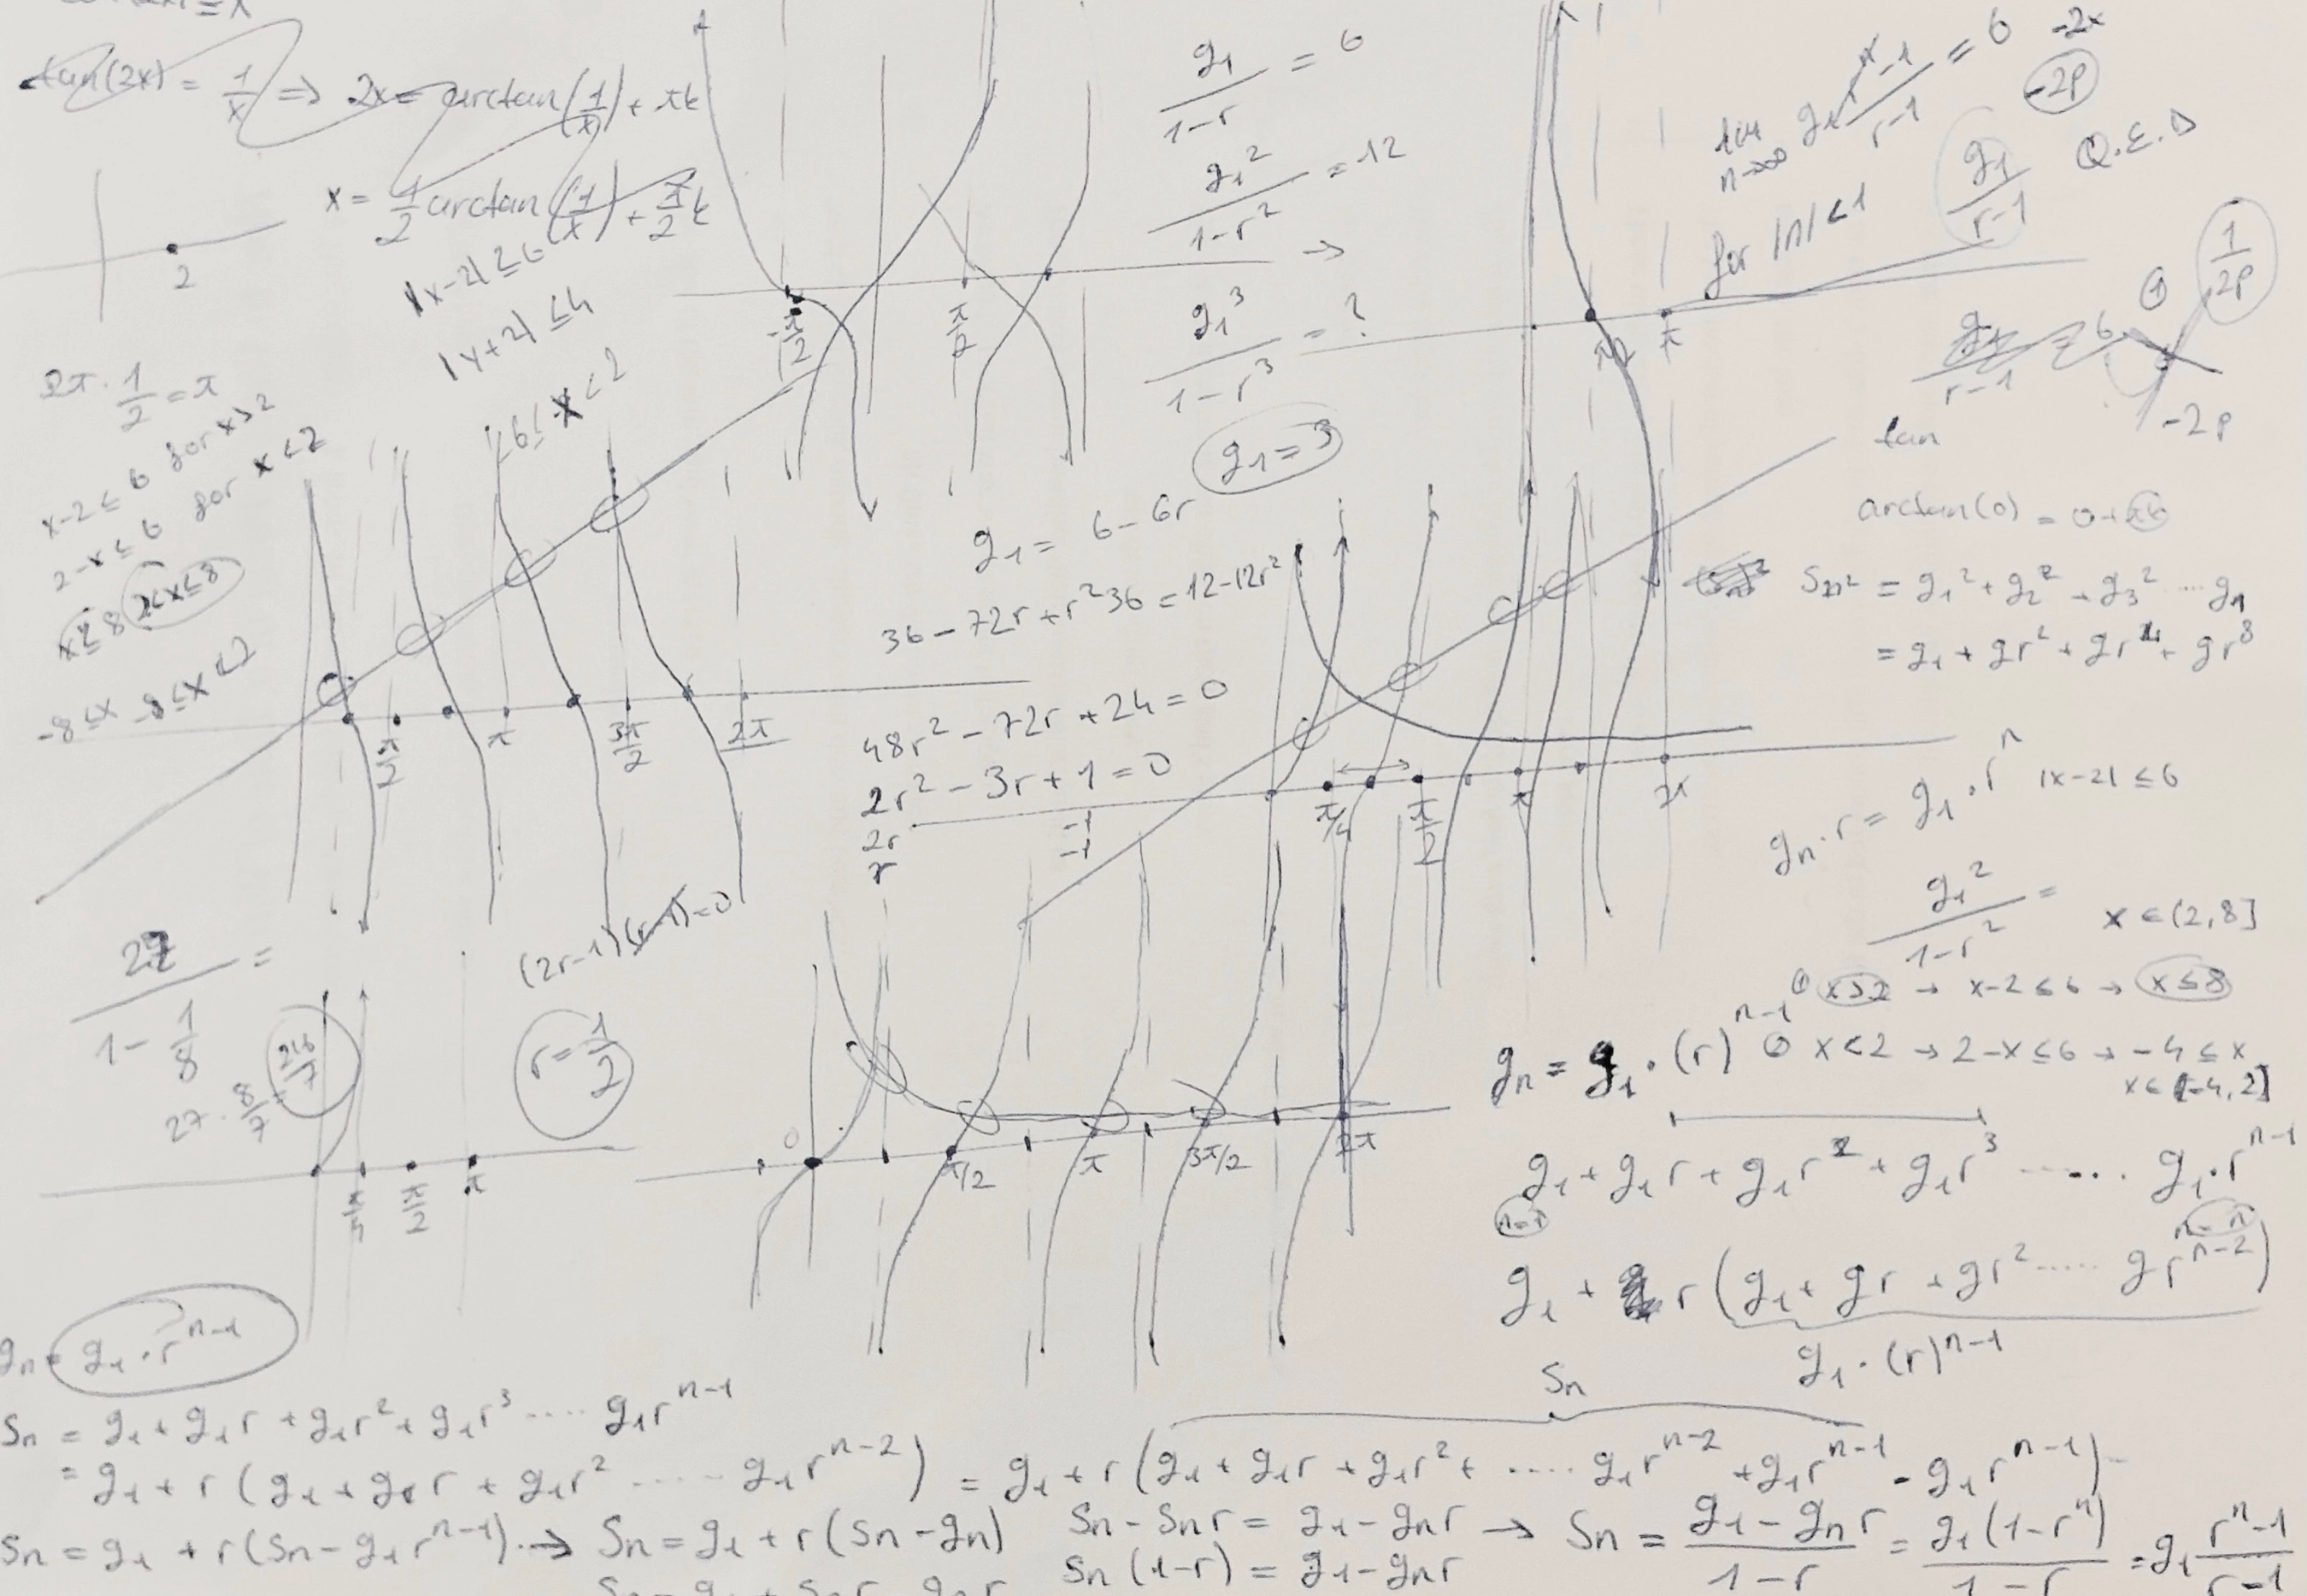 tan(2x) = 1/x ⇒ 2x = arctan(1/x) + πk
x = 1/2 arctan(1/x) + π/2 k
2
|x-2| ≤ 6
|y+2| ≤ 4
2π · 1/2 = π
x-2 ≤ 6 for x>2
2-x ≤ 6 for x<2
x ≤ 8 2<x≤8
-8 ≤ x -8 ≤ x < 2
-6 ≤ x < 2
π/2 π 3π/2 2π
-π/2 π/2
g₁/(1-r) = 6
g₁²/(1-r²) = 12
→
g₁³/(1-r³) = ?
g₁ = 3
g₁ = 6-6r
36-72r+r²36 = 12-12r²
48r²-72r+24 = 0
2r²-3r+1 = 0
2r -1
r -1
(2r-1)(r-1)=0
r = 1/2
27/(1 - 1/8) =
27 · 8/7 = 216/7
π/2 π
lim n→∞ g₁ (r-1)/(r-1) = 6
-2x
-2p
Q.E.D
for |n|<1
g₁/(r-1)
π/2 π
1/2p
g₁/(r-1) = 6
-2p
tan
arctan(0) = 0+πk
Sn² = g₁² + g₂² + g₃² ···· gn
= g₁ + gr² + gr⁴ + gr⁸
π/4 π/2 π 2π
gn·r = g₁·rⁿ
|x-2| ≤ 6
g₁²/(1-r²) =
x ∈ (2,8]
x>2 → x-2≤6 → x≤8
x<2 → 2-x≤6 → -4≤x
x∈[-4,2]
gn = g₁·(r)ⁿ⁻¹
0 π/2 π 3π/2 2π
g₁+g₁r+g₁r²+g₁r³ ····· g₁·rⁿ⁻¹
g₁ + r(g₁+gr+gr² ····· grⁿ⁻²)
g₁·(r)ⁿ⁻¹
gn = g₁·rⁿ⁻¹
Sn
Sn = g₁+g₁r+g₁r²+g₁r³ ···· g₁rⁿ⁻¹
= g₁+r(g₁+g₁r+g₁r² ····· g₁rⁿ⁻²) = g₁+r(g₁+g₁r+g₁r²+ ····· g₁rⁿ⁻²+g₁rⁿ⁻¹-g₁rⁿ⁻¹)
Sn = g₁ + r(Sn-g₁rⁿ⁻¹) → Sn = g₁+r(Sn-gn) Sn-Snr = g₁-gnr → Sn = (g₁-gnr)/(1-r) = g₁(1-rⁿ)/(1-r) = g₁ (rⁿ-1)/(r-1)
Sn(1-r) = g₁-gnr